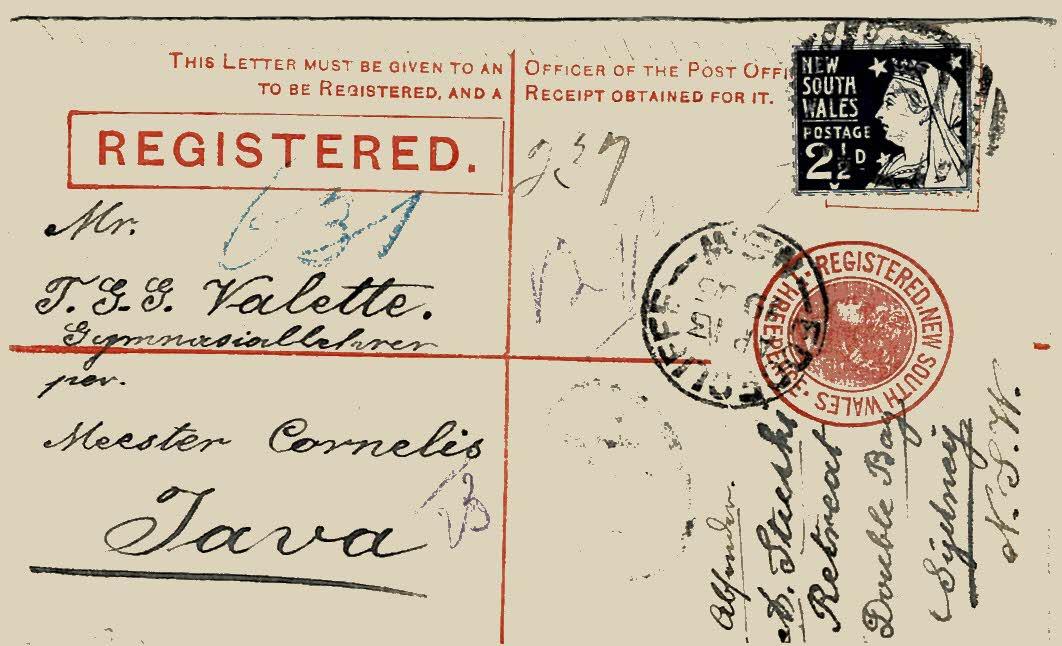 THIS LETTER MUST BE GIVEN TO AN OFFICER OF THE POST OFFI
TO BE REGISTERED, AND A RECEIPT OBTAINED FOR IT.
REGISTERED.
NEW
SOUTH
WALES
POSTAGE
2½D
237
631
Mr.
T. G. G. Valette.
Gymnasiallehrer
per.
Meester Cornelis
Java
REGISTERED NEW SOUTH WALES
THREEPENCE
Absender.
Retreat
Double Bay
Sydney
N. S. W.